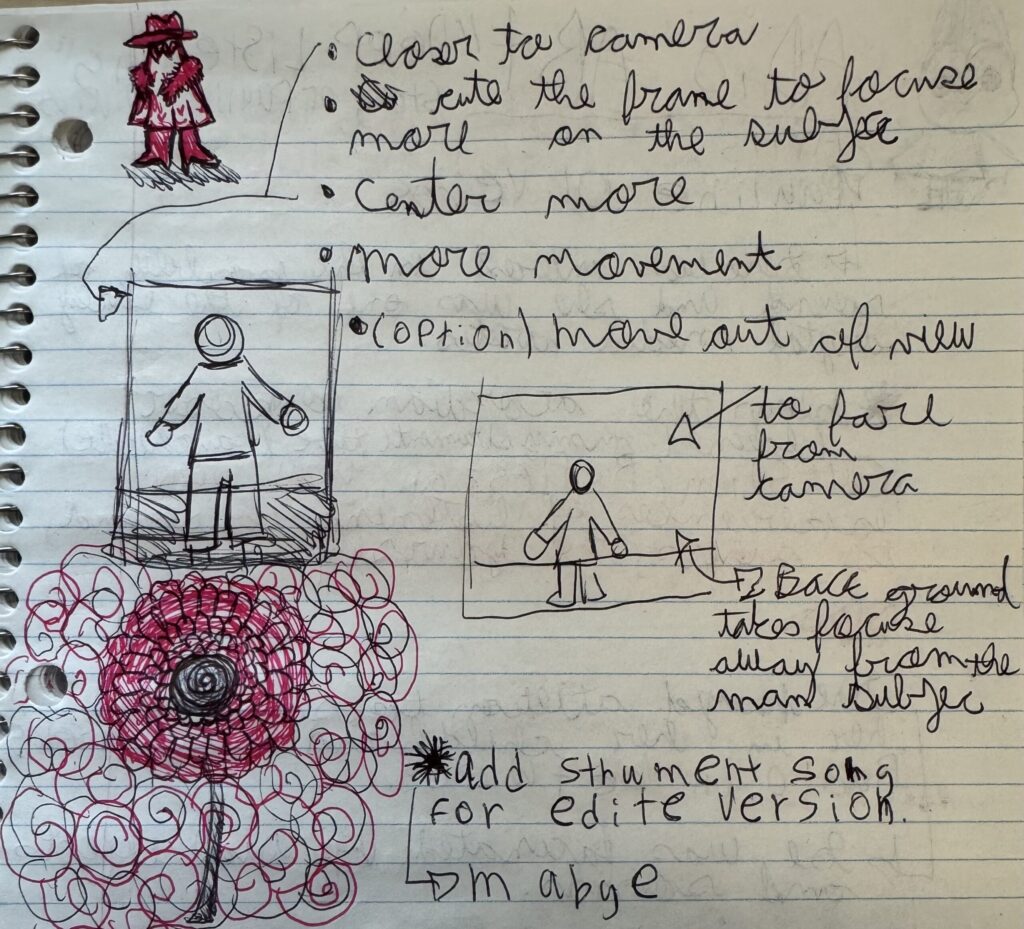 • Closer to camera
• cute the frame to focuse
more on the subjec
• Center more
• More movement
• (option) move out of view
to fare
from
camera
Back ground
takes focuse
away from the
man subjec
*add strument song
for edite version.
mabye